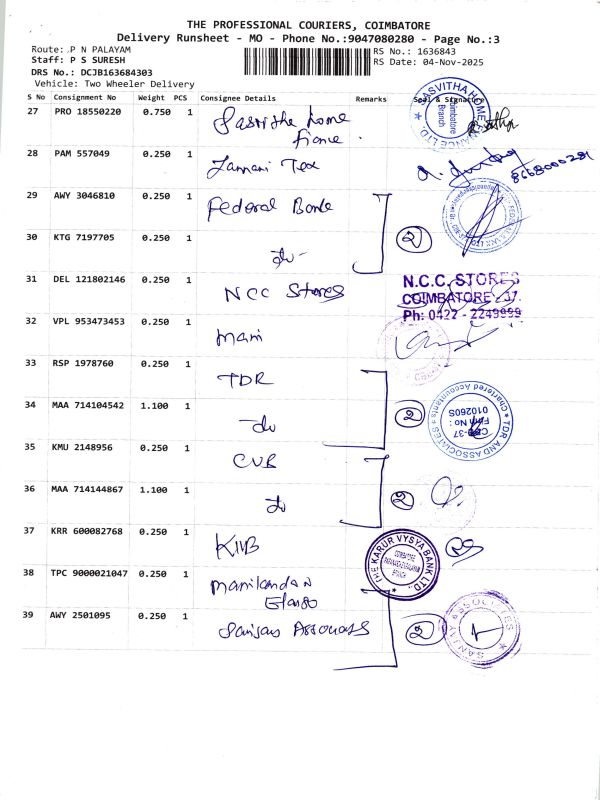 THE PROFESSIONAL COURIERS, COIMBATORE
Delivery Runsheet - MO - Phone No.:9047080280 - Page No.:3
Route: P N PALAYAM
RS No.: 1636843
Staff: P S SURESH
RS Date: 04-Nov-2025
DRS No.: DCJB163684303
Vehicle: Two Wheeler Delivery
S No Consignment No Weight PCS Consignee Details Remarks Seal & Signature
27 PRO 18550220 0.750 1 Sasvitha home
finance
SASVITHA HOME FINANCE LTD.
Coimbatore
Branch
28 PAM 557049 0.250 1 Tex
8668000281
29 AWY 3046810 0.250 1 Federal Bank
30 KTG 7197705 0.250 1 do
2
31 DEL 121802146 0.250 1 NCC Stores
N.C.C. STORES
COIMBATORE - 37.
Ph: 0422 - 2249999
32 VPL 953473453 0.250 1 mani
33 RSP 1978760 0.250 1 TDR
34 MAA 714104542 1.100 1 do
2
TDR AND ASSOCIATES
Chartered Accountants
CBE-37
Firm No :
010260S
35 KMU 2148956 0.250 1 CUB
36 MAA 714144867 1.100 1 do
2
37 KRR 600082768 0.250 1 KVB
THE KARUR VYSYA BANK LTD.,
COIMBATORE
BRANCH
38 TPC 9000021047 0.250 1 Manikandan
39 AWY 2501095 0.250 1 Sanjay Associates
2
SANJAY ASSOCIATES